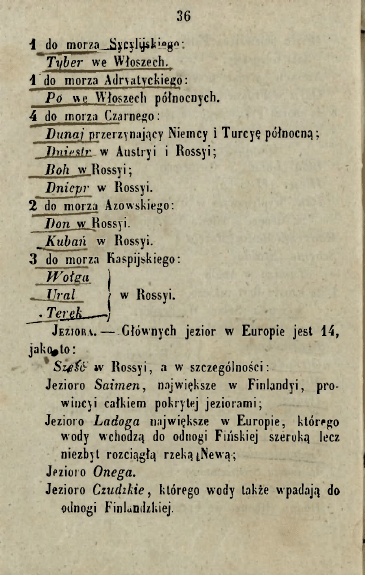 36
1 do morza Sycylijskiego:
Tyber we Włoszech.
1 do morza Adryatyckiego:
Po we Włoszech północnych.
4 do morza Czarnego:
Dunaj przerzynający Niemcy i Turcyę północną;
Dniestr w Austryi i Rossyi;
Boh w Rossyi;
Dniepr w Rossyi.
2 do morza Azowskiego:
Don w Rossyi.
Kubań w Rossyi.
3 do morza Kaspijskiego:
Wołga
Ural } w Rossyi.
Terek
Jeziora. — Głównych jezior w Europie jest 14,
jako to:
Sześć w Rossyi, a w szczególności:
Jezioro Saimen, największe w Finlandyi, pro-
wincyi całkiem pokrytej jeziorami;
Jezioro Ładoga największe w Europie, którego
wody wchodzą do odnogi Fińskiej szeroką lecz
niezbyt rozciągłą rzeką Newą;
Jezioro Onega.
Jezioro Czudzkie, którego wody także wpadają do
odnogi Finlandzkiej.